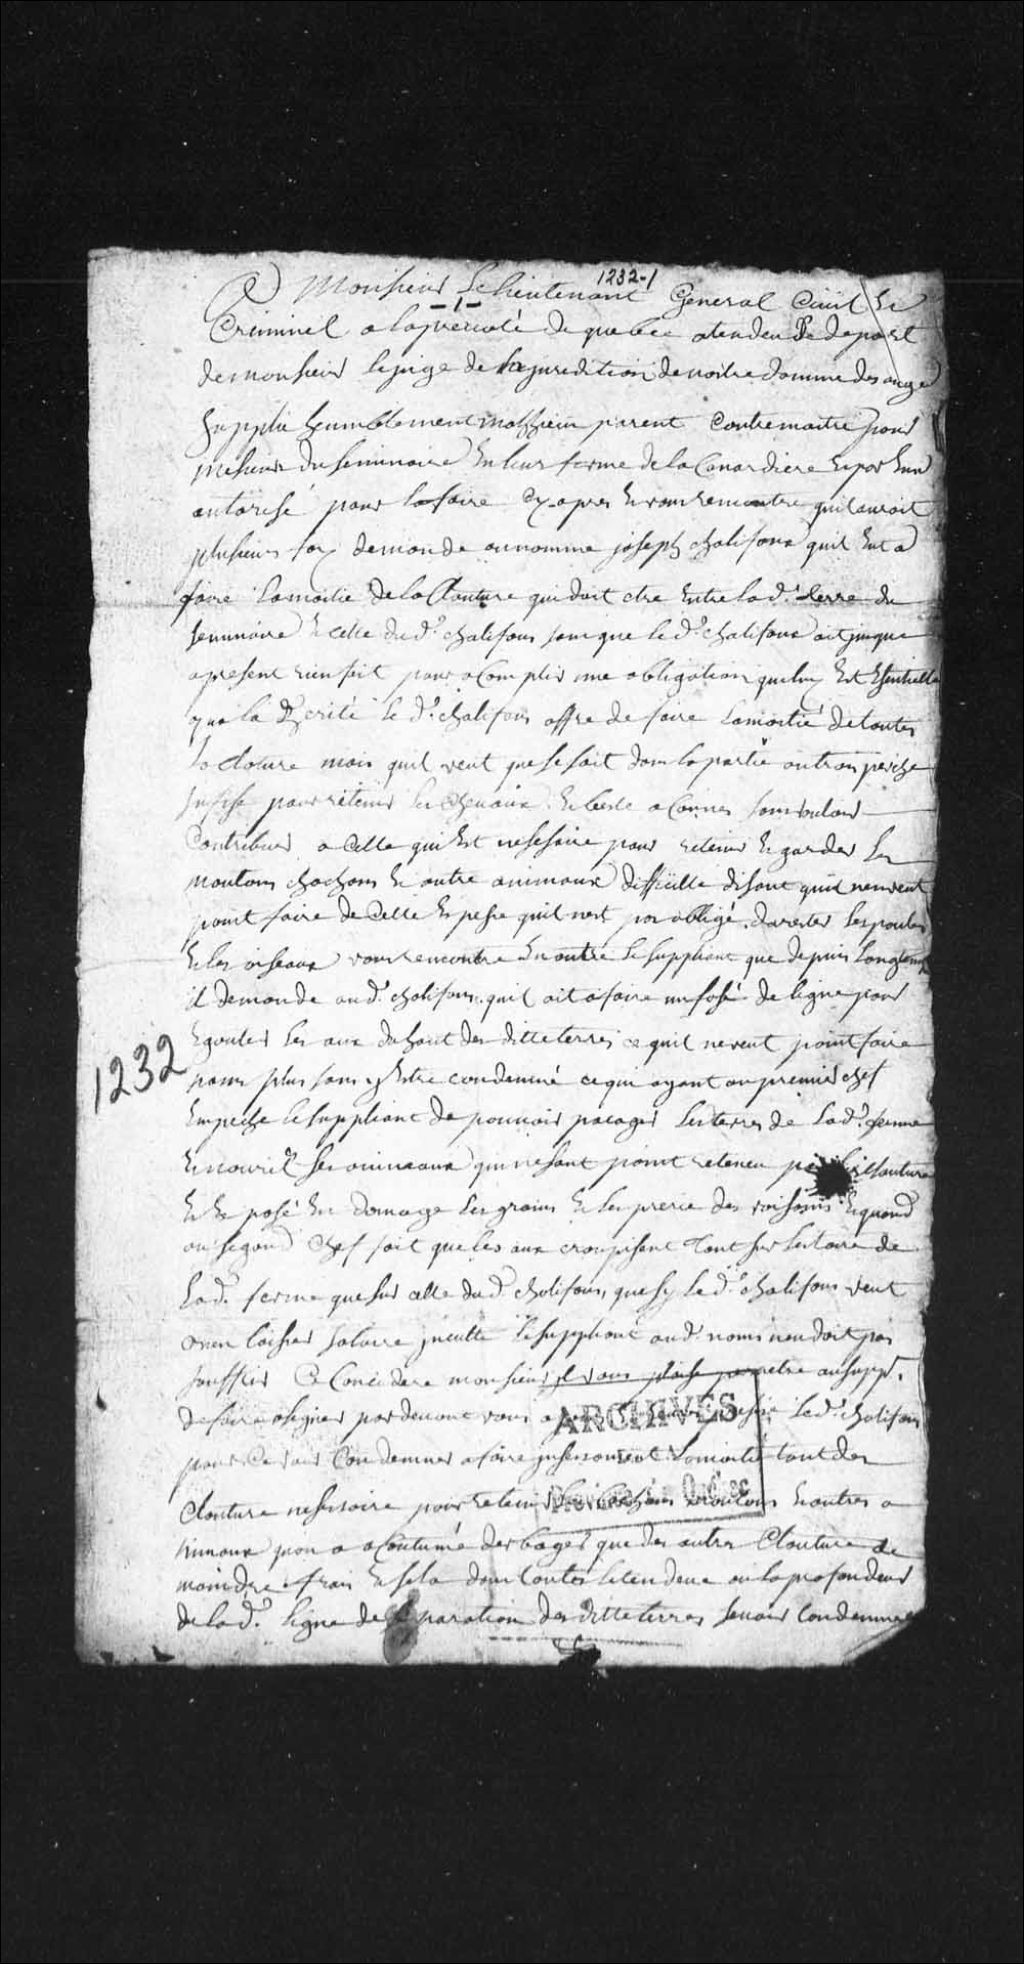 1232-1
A Monsieur Le Lieutenant General Civil Et
-1-
Criminel a la prevoté de quebec atendeu Le depart
de monsieur le juge de la juredition de noitre damme des ange
Supplie heumblement mathieu parent Contremaitre pour
messieurs du seminaire En leur ferme de la Canardiere Et par Eux
autorisé pour la faire Cy apres Et vous remontre quil auroit
plusieurs foy demande au nomme joseph chalifour quil Eut a
faire la moitie de la Clouture qui doit etre Entre la d.e terre du
seminaire Et celle du d.t chalifour sans que le d.t chalifour ait jusque
a present rien fait pour acomplir une obligation quy luy Est Esentielle
qua la verité le d.t chalifour offre de faire la moitié de toutes
la cloture mais quil veut que se soit dans la partie ou trois perche
sufise pour retenir les chevaux Et beste a Cornes sans vouloir
Contribuer a Celle qui Est nessesaire pour retenir Et garder les
moutons chochons Et autre animaux difficille disant quil ne veut
point faire de Cette Espesse quil nest pas obligé darester les poules
Et les oiseaux vous remontre En outre le suppliant que depuis Longtems
il demande au d.t chalifour quil ait a faire un fosé de ligne pour
Egouter les aux du haut des ditte terres ce quil ne veut point faire
1232
non plus sans y Estre condemné ce qui ayant au premier chef
Empeche le suppliant de pouvoir pacager les terres de la d.e ferme
Et nourir ses animaux qui ne sont point reteneu Clouture
Et Exposé En domage les grains Et les prerie des voisoins Et quand
au segond Chef fait que les aux croupisent tant sur les taire de
la d.e ferme que sur celle du d.t chalifour, que sy le d.t chalifour veut
bien laisser sa taire inculte le suppliant au d. noms nen doit pas
souffrir Ce Concidere monsieur il vous plaise permetre au supp.t
de faire asigner par devant vous le d.t chalifour
pour ce voir Condemner a faire insesament la moitié tant des
Clouture nesesaire pour retenir les Cochons moutons Et autres a
nimaux que des autres Clouture de
moindre frais Et sela dans toutes letendeue ou la profondeur
de la d.e ligne de separation des ditte terres se voir Condemner
ARCHIVES
Province de Québec